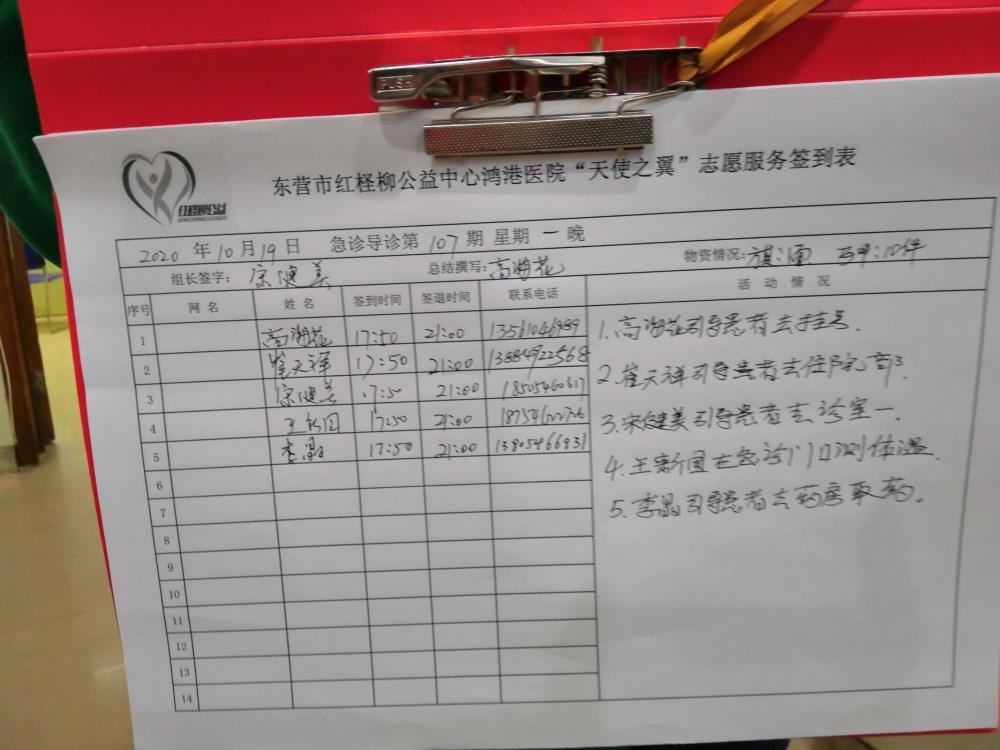 PUSH
红柽柳公益
东营市红柽柳公益中心鸿港医院“天使之翼”志愿服务签到表
2020 年 10 月 19 日 急诊导诊第 107 期 星期 一 晚
组长签字: 宋健美 总结撰写: 高海花 物资情况: 旗:1面 马甲:10件
序号 网 名 姓 名 签到时间 签退时间 联系电话 活 动 情 况
1 高海花 17:50 21:00 13561046989
2 崔天祥 17:50 21:00 13884922568
3 宋健美 17:50 21:00 18505460617
4 王新国 17:50 21:00
5 李晶 17:50 21:00 13805466931
6
7
8
9
10
11
12
13
14
1.高海花引导患者去挂号.
2.崔天祥引导患者去住院部.
3.宋健美引导患者去诊室一.
4.王新国在急诊门口测体温.
5.李晶引导患者去药房取药。